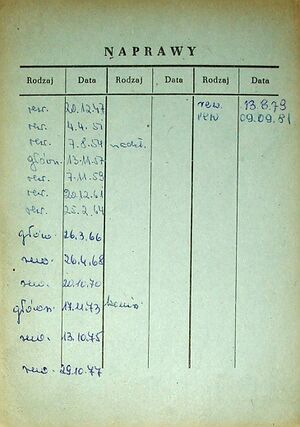 NAPRAWY
Rodzaj Data Rodzaj Data Rodzaj Data
rew. 20.12.47 rew. 13.8.79
rew. 4.4.51 rew 09.09.81
rew. 7.8.54
główn. 13.11.57
rew. 7.11.59
rew. 20.12.61
rew. 25.2.64
główn. 26.3.66
rew. 26.4.68
rew. 20.10.70
główn. 17.11.73
rew. 13.10.75
rew. 29.10.77